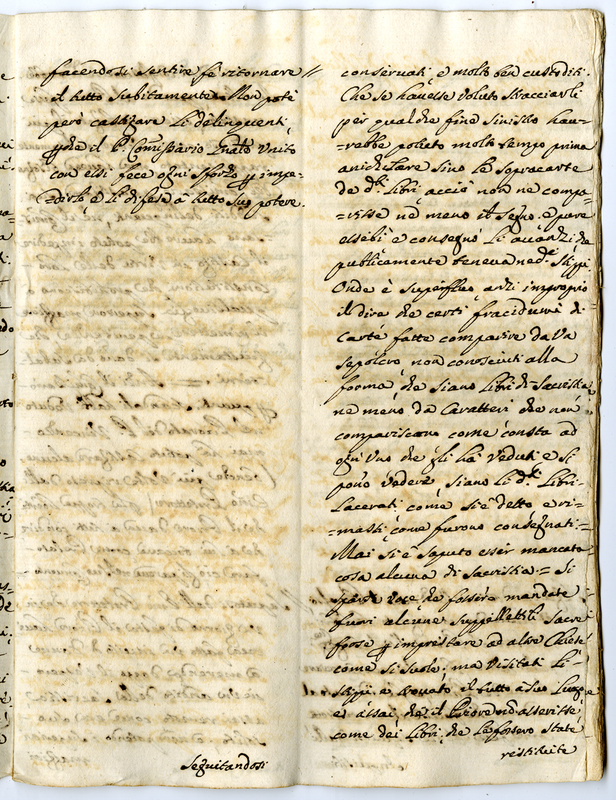 facendosi sentire fè ritornare //
il tutto subitamente. Non potè
però castigare li delinquenti,
il P. Comissario Unito
con essi fece ogni sforzo p impe-
=dirlo, e li difese à tutto suo potere.
Seguitandosi
conservati, e molto ben custoditi.
Che se havesse voluto stracciarli
per qualche fine sinistro hau-
=rebbe potuto molto tempo prima
anichilare sino le sopracarte
de d.ti libri, acciò non ne compa-
=risse nè meno il segno, e pure
essibì, e consegnò li avanzi, che
publicamente teneva ne d.i
Onde è superfluo, anzi improprio
il dire che certi fracidumi di
carte fatte comparire da un
sepolcro non conosciuti alla
forma, che siano libri di sacristia
ne meno da caratteri, che non
compariscano come consta ad
ogni uno che gli hà veduti, e si
pono vedere, siano li d.ti libri
lacerati, come si è detto, e ri-
=masti, come furono consegnati.
Mai si è saputo esser mancato
cosa alcuna di sacristia = Si
sparse voce, che fossero mandate
fuori alcune suppellettili sacre
forse p imprestare ad altre Chiese
come si suole; ma visitati li
trovato il tutto à suo luogo
e assai, che il non asserisse
come dei libri, che le fossero state
restituite